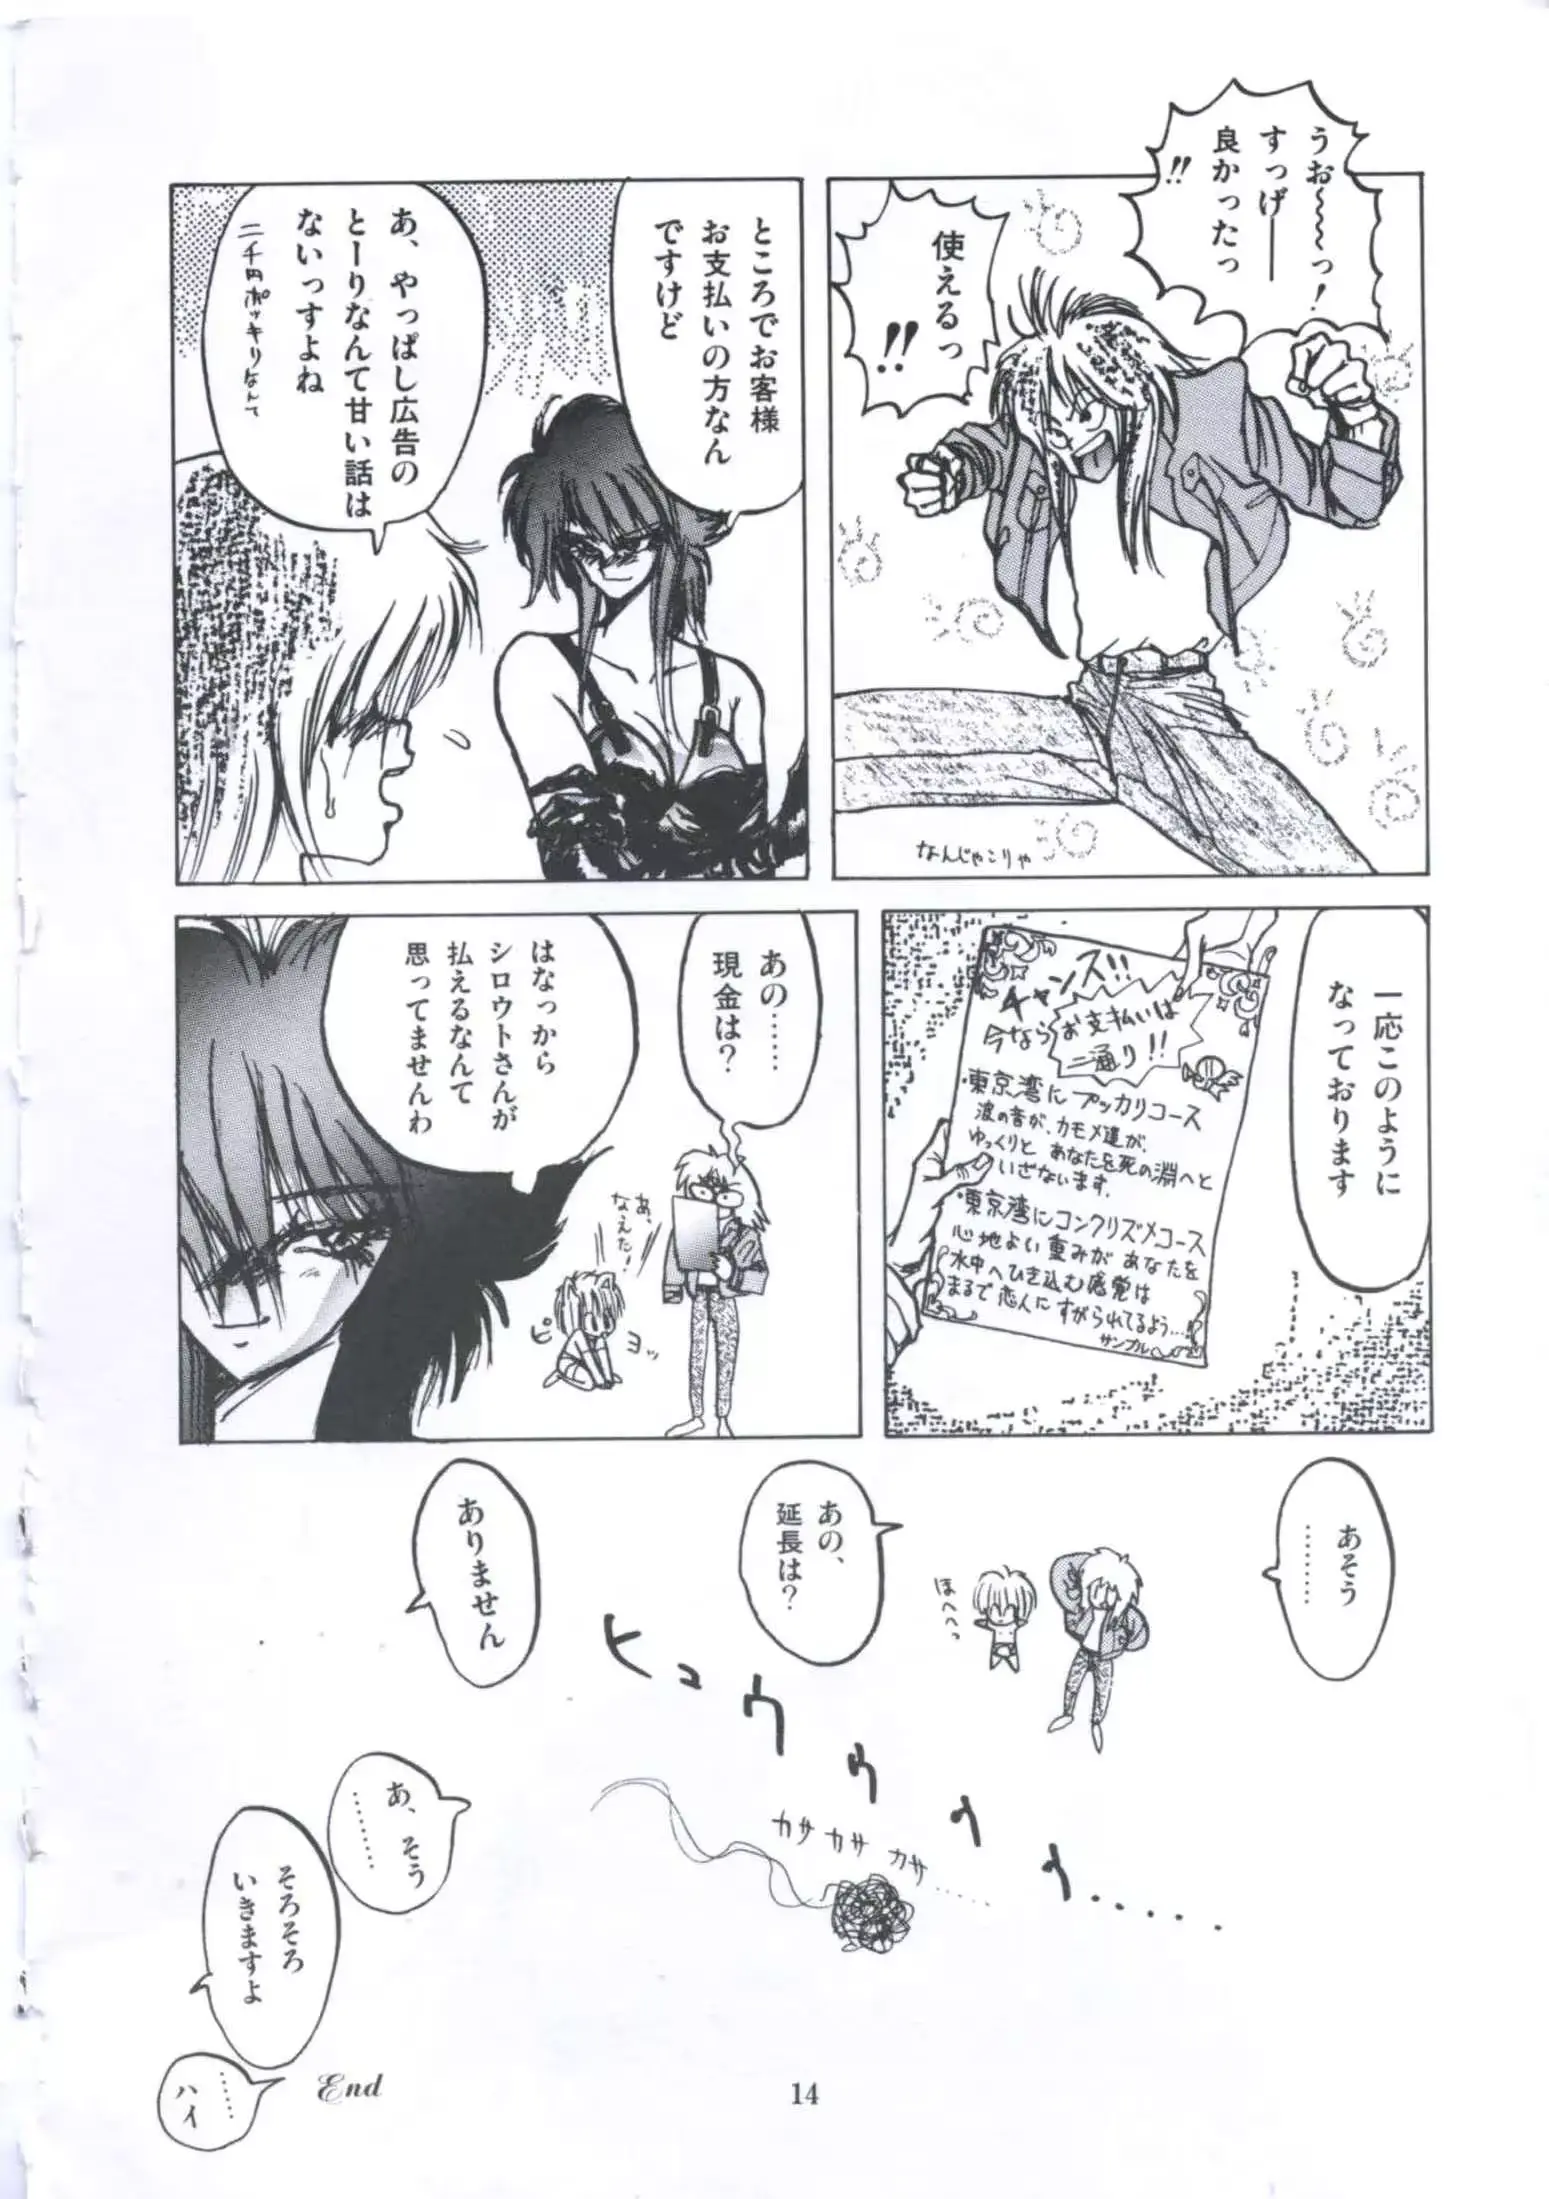 うお～～～っ！
すっげ――
良かったっ
!!
使えるっ
!!
なんじゃこりゃ
ところでお客様
お支払いの方なん
ですけど
あ、やっぱし広告の
とーりなんて甘い話は
ないっすよね
二千円ポッキリなんて
一応このように
なっております
チャンス!!
今なら
お支払いは
二通り!!
・東京湾にプッカリコース
波の音が、カモメ達が、
ゆっくりと あなたを死の淵へと
いざないます.
・東京湾にコンクリヅメコース
心地よい重みが あなたを
水中へひき込む感覚は
まるで恋人にすがられてるよう…
サンプル
あの……
現金は？
あ、
なえた！
ピ
ヨッ
はなっから
シロウトさんが
払えるなんて
思ってませんわ
あそう
………
ほへへっ
あの、
延長は？
ありません
ヒュウウウウ……
カサカサ カサ……
あ、そう
………
そろそろ
いきますよ
……
ハイ
End
14